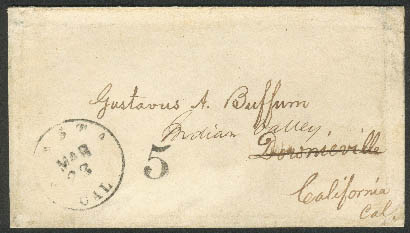 Gustavus A. Buffum
Indian Valley,
Downieville
California
Cal.
MAR
CAL
5